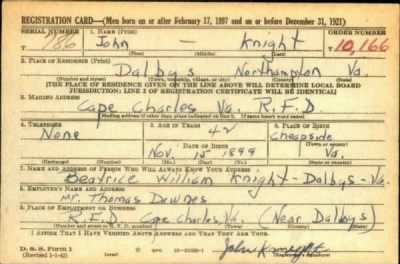 REGISTRATION CARD—(Men born on or after February 17, 1897 and on or before December 31, 1921)
SERIAL NUMBER 1. NAME (Print) ORDER NUMBER
U 86 John — Knight 10,166
(First) (Middle) (Last)
2. PLACE OF RESIDENCE (Print)
Dalbys Northampton Va.
(Number and street) (Town, township, village, or city) (County) (State)
[THE PLACE OF RESIDENCE GIVEN ON THE LINE ABOVE WILL DETERMINE LOCAL BOARD
JURISDICTION; LINE 2 OF REGISTRATION CERTIFICATE WILL BE IDENTICAL]
3. MAILING ADDRESS
Cape Charles Va. R.F.D
[Mailing address if other than place indicated on line 2. If same insert word same]
4. TELEPHONE 5. AGE IN YEARS 6. PLACE OF BIRTH
None 42 Cheapside
DATE OF BIRTH (Town or county)
Nov. 15 1899 Va.
(Exchange) (Number) (Mo.) (Day) (Yr.) (State or country)
7. NAME AND ADDRESS OF PERSON WHO WILL ALWAYS KNOW YOUR ADDRESS
Beatrice William Knight-Dalbys-Va.
8. EMPLOYER'S NAME AND ADDRESS
Mr. Thomas Downes
9. PLACE OF EMPLOYMENT OR BUSINESS
R.F.D Cape Charles, Va. (Near Dalbys)
(Number and street or R. F. D. number) (Town) (County) (State)
I AFFIRM THAT I HAVE VERIFIED ABOVE ANSWERS AND THAT THEY ARE TRUE.
D. S. S. Form 1
(Revised 1-1-42) John Knight